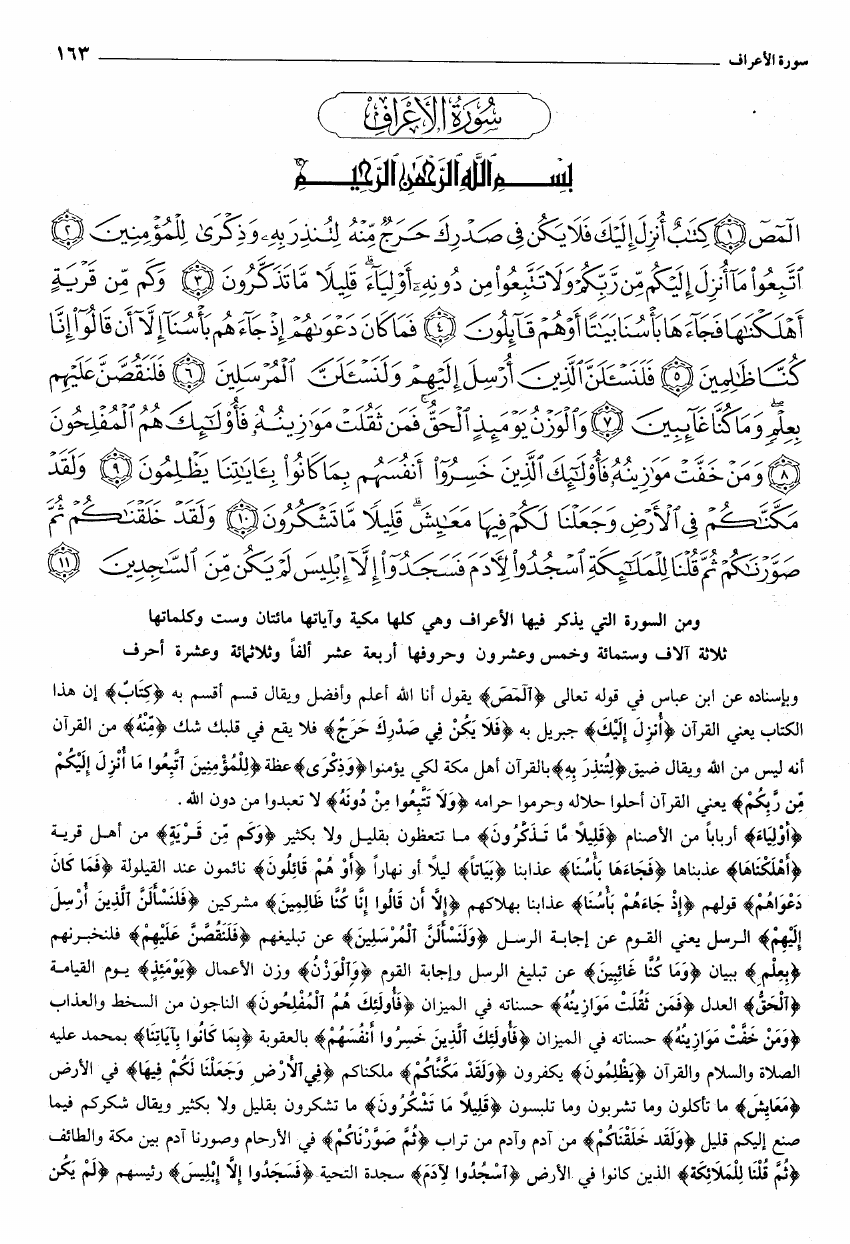 سورة الأعراف ١٦٣
سُورَةُ الأَعْرَافِ
بِسْمِ ٱللَّهِ ٱلرَّحْمَٰنِ ٱلرَّحِيمِ
الٓمٓصٓ ١ كِتَٰبٌ أُنزِلَ إِلَيْكَ فَلَا يَكُن فِى صَدْرِكَ حَرَجٌ مِّنْهُ لِتُنذِرَ بِهِۦ وَذِكْرَىٰ لِلْمُؤْمِنِينَ ٢
ٱتَّبِعُوا۟ مَآ أُنزِلَ إِلَيْكُم مِّن رَّبِّكُمْ وَلَا تَتَّبِعُوا۟ مِن دُونِهِۦٓ أَوْلِيَآءَ ۗ قَلِيلًا مَّا تَذَكَّرُونَ ٣ وَكَم مِّن قَرْيَةٍ
أَهْلَكْنَٰهَا فَجَآءَهَا بَأْسُنَا بَيَٰتًا أَوْ هُمْ قَآئِلُونَ ٤ فَمَا كَانَ دَعْوَىٰهُمْ إِذْ جَآءَهُم بَأْسُنَآ إِلَّآ أَن قَالُوٓا۟ إِنَّا
كُنَّا ظَٰلِمِينَ ٥ فَلَنَسْـَٔلَنَّ ٱلَّذِينَ أُرْسِلَ إِلَيْهِمْ وَلَنَسْـَٔلَنَّ ٱلْمُرْسَلِينَ ٦ فَلَنَقُصَّنَّ عَلَيْهِم
بِعِلْمٍ ۖ وَمَا كُنَّا غَآئِبِينَ ٧ وَٱلْوَزْنُ يَوْمَئِذٍ ٱلْحَقُّ ۚ فَمَن ثَقُلَتْ مَوَٰزِينُهُۥ فَأُو۟لَٰٓئِكَ هُمُ ٱلْمُفْلِحُونَ
٨ وَمَنْ خَفَّتْ مَوَٰزِينُهُۥ فَأُو۟لَٰٓئِكَ ٱلَّذِينَ خَسِرُوٓا۟ أَنفُسَهُم بِمَا كَانُوا۟ بِـَٔايَٰتِنَا يَظْلِمُونَ ٩ وَلَقَدْ
مَكَّنَّٰكُمْ فِى ٱلْأَرْضِ وَجَعَلْنَا لَكُمْ فِيهَا مَعَٰيِشَ ۗ قَلِيلًا مَّا تَشْكُرُونَ ١٠ وَلَقَدْ خَلَقْنَٰكُمْ ثُمَّ
صَوَّرْنَٰكُمْ ثُمَّ قُلْنَا لِلْمَلَٰٓئِكَةِ ٱسْجُدُوا۟ لِءَادَمَ فَسَجَدُوٓا۟ إِلَّآ إِبْلِيسَ لَمْ يَكُن مِّنَ ٱلسَّٰجِدِينَ ١١
ومن السورة التي يذكر فيها الأعراف وهي كلها مكية وآياتها مائتان وست وكلماتها
ثلاثة آلاف وستمائة وخمس وعشرون وحروفها أربعة عشر ألفاً وثلاثمائة وعشرة أحرف
وبإسناده عن ابن عباس في قوله تعالى ﴿الۤمۤصۤ﴾ يقول أنا الله أعلم وأفضل ويقال قسم أقسم به ﴿كِتَابٌ﴾ إن هذا
الكتاب يعني القرآن ﴿أُنزِلَ إِلَيْكَ﴾ جبريل به ﴿فَلَا يَكُنْ فِي صَدْرِكَ حَرَجٌ﴾ فلا يقع في قلبك شك ﴿مِّنْهُ﴾ من القرآن
أنه ليس من الله ويقال ضيق ﴿لِتُنذِرَ بِهِ﴾ بالقرآن أهل مكة لكي يؤمنوا ﴿وَذِكْرَى﴾ عظة ﴿لِلْمُؤْمِنِينَ ٱتَّبِعُوا مَا أُنْزِلَ إِلَيْكُمْ
مِّن رَّبِّكُمْ﴾ يعني القرآن أحلوا حلاله وحرموا حرامه ﴿وَلَا تَتَّبِعُوا مِنْ دُونَهُ﴾ لا تعبدوا من دون الله .
﴿أَوْلِيَاءَ﴾ أرباباً من الأصنام ﴿قَلِيلًا مَّا تَذَكَّرُونَ﴾ ما تتعظون بقليل ولا بكثير ﴿وَكَم مِّن قَرْيَةٍ﴾ من أهل قرية
﴿أَهْلَكْنَاهَا﴾ عذبناها ﴿فَجَاءَهَا بَأْسُنَا﴾ عذابنا ﴿بَيَاتاً﴾ ليلاً أو نهاراً ﴿أَوْ هُمْ قَائِلُونَ﴾ نائمون عند القيلولة ﴿فَمَا كَانَ
دَعْوَاهُمْ﴾ قولهم ﴿إِذْ جَاءَهُمْ بَأْسُنَا﴾ عذابنا بهلاكهم ﴿إِلَّا أَن قَالُوا إِنَّا كُنَّا ظَالِمِينَ﴾ مشركين ﴿فَلَنَسْأَلَنَّ ٱلَّذِينَ أُرْسِلَ
إِلَيْهِمْ﴾ الرسل يعني القوم عن إجابة الرسل ﴿وَلَنَسْأَلَنَّ ٱلْمُرْسَلِينَ﴾ عن تبليغهم ﴿فَلَنَقُصَّنَّ عَلَيْهِمْ﴾ فلنخبرنهم
﴿بِعِلْمٍ﴾ ببيان ﴿وَمَا كُنَّا غَائِبِينَ﴾ عن تبليغ الرسل وإجابة القوم ﴿وَٱلْوَزْنُ﴾ وزن الأعمال ﴿يَوْمَئِذٍ﴾ يوم القيامة
﴿ٱلْحَقُّ﴾ العدل ﴿فَمَن ثَقُلَتْ مَوَازِينُهُ﴾ حسناته في الميزان ﴿فَأُولَئِكَ هُمُ ٱلْمُفْلِحُونَ﴾ الناجون من السخط والعذاب
﴿وَمَنْ خَفَّتْ مَوَازِينُهُ﴾ حسناته في الميزان ﴿فَأُولَئِكَ ٱلَّذِينَ خَسِرُوا أَنْفُسَهُمْ﴾ بالعقوبة ﴿بِمَا كَانُوا بِآيَاتِنَا﴾ بمحمد عليه
الصلاة والسلام والقرآن ﴿يَظْلِمُونَ﴾ يكفرون ﴿وَلَقَدْ مَكَّنَّاكُمْ﴾ ملكناكم ﴿فِي ٱلْأَرْضِ وَجَعَلْنَا لَكُمْ فِيهَا﴾ في الأرض
﴿مَعَايِشَ﴾ ما تأكلون وما تشربون وما تلبسون ﴿قَلِيلًا مَا تَشْكُرُونَ﴾ ما تشكرون بقليل ولا بكثير ويقال شكركم فيما
صنع إليكم قليل ﴿وَلَقَد خَلَقْنَاكُمْ﴾ من آدم وآدم من تراب ﴿ثُمَّ صَوَّرْنَاكُمْ﴾ في الأرحام وصورنا آدم بين مكة والطائف
﴿ثُمَّ قُلْنَا لِلْمَلَائِكَة﴾ الذين كانوا في الأرض ﴿ٱسْجُدُوا لِآدَمَ﴾ سجدة التحية ﴿فَسَجَدُوا إِلَّا إِبْلِيسَ﴾ رئيسهم ﴿لَمْ يَكُن